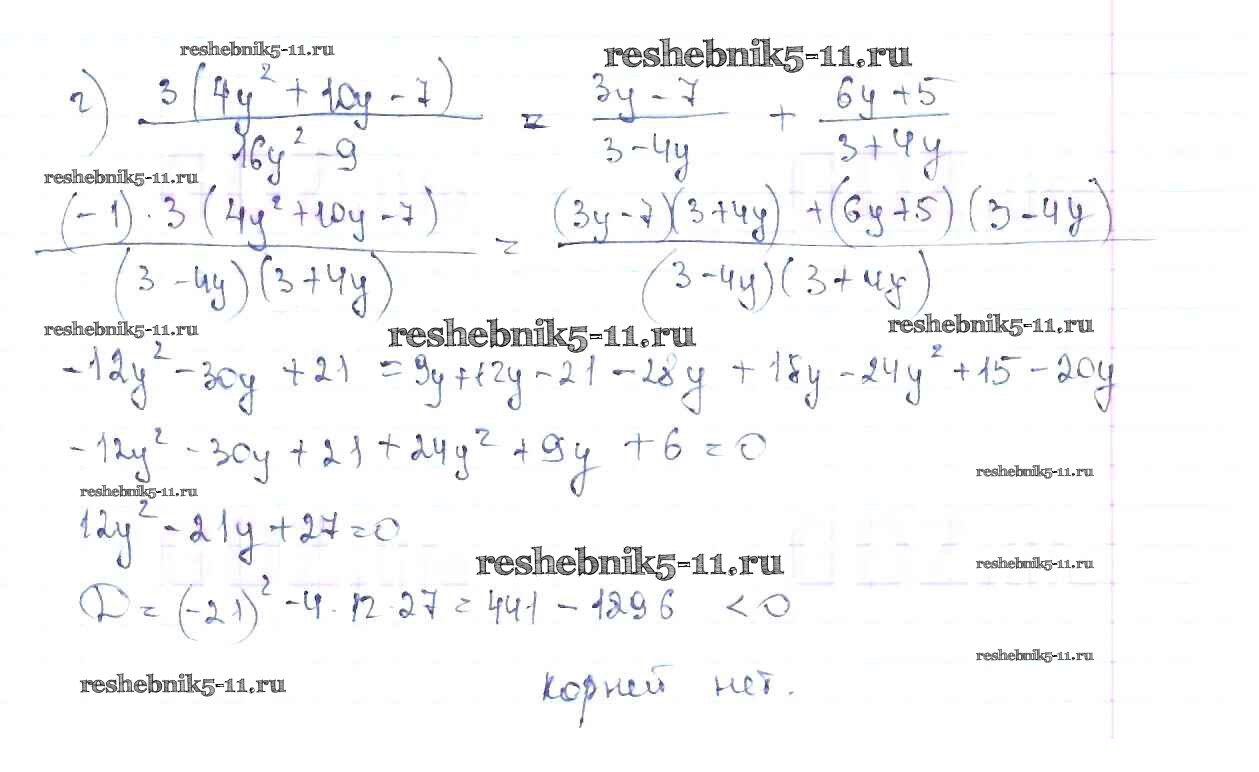 reshebnik5-11.ru reshebnik5-11.ru
г) 3(4y² + 10y - 7) / 16y² - 9 = 3y - 7 / 3 - 4y + 6y + 5 / 3 + 4y
reshebnik5-11.ru
(-1) · 3 (4y² + 10y - 7) / (3 - 4y)(3 + 4y) = (3y - 7)(3 + 4y) + (6y + 5)(3 - 4y) / (3 - 4y)(3 + 4y)
reshebnik5-11.ru reshebnik5-11.ru reshebnik5-11.ru
-12y² - 30y + 21 = 9y + 12y - 21 - 28y + 18y - 24y² + 15 - 20y
-12y² - 30y + 21 + 24y² + 9y + 6 = 0
reshebnik5-11.ru
reshebnik5-11.ru
12y² - 21y + 27 = 0
reshebnik5-11.ru reshebnik5-11.ru
D = (-21)² - 4 · 12 · 27 = 441 - 1296 < 0
reshebnik5-11.ru
reshebnik5-11.ru корней нет.